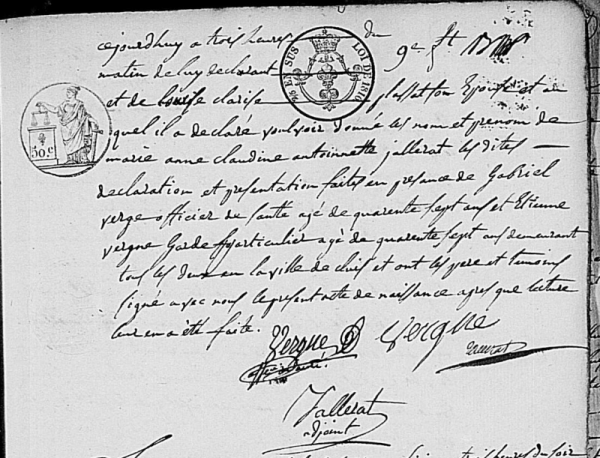 cejourdhuy a trois heures du
matin de luy declarant
et de louise clarisse plassatton Epouse et a
quel il a declaré voulvoir donnée les nom et prenom de
marie anne claudine antoinnette jallerat les dites
declaration et presentation faites en presance de Gabriel
vergne officier de santé agé de quarente sept ans et Etienne
vergne Garde particulier agé de quarente sept ans demeurant
tous les deux en la ville de et ont les pere et temoins
signé avec nous le present acte de naissance apres que lecture
leur en a été faite.
EN SUS LOI DE 1816
50.c
Vergne
Vergne
Jallerat
adjoint